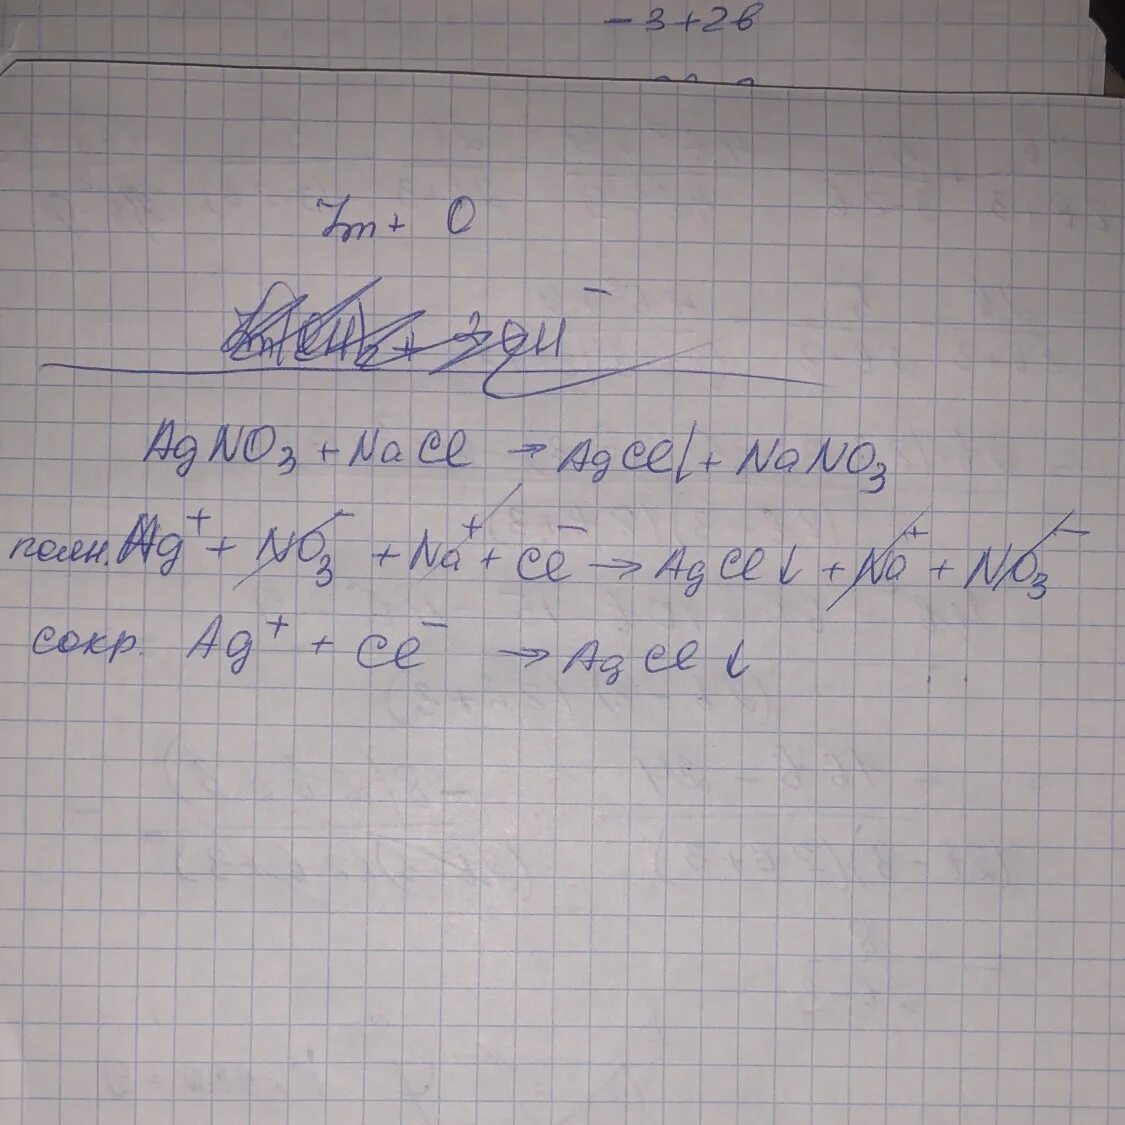 -3+2в
Zn + O
AgNO₃ + NaCl → AgCl↓ + NaNO₃
полн. Ag⁺ + NO₃⁻ + Na⁺ + Cl⁻ → AgCl↓ + Na⁺ + NO₃⁻
сокр. Ag⁺ + Cl⁻ → AgCl↓